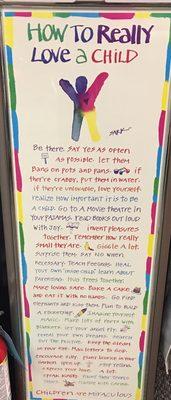 How To Really
Love a Child
Be there. Say yes as often
as possible. Let them
bang on pots and pans. If
they're crabby, put them in water.
If they're unlovable, love yourself.
Realize how important it is to be
a child. Go to a movie theatre in
your pajamas. Read books out loud
with joy. Invent pleasures
together. Remember how really
small they are. Giggle a lot.
Surprise them. Say no when
necessary. Teach feelings. Heal
your own "inner child". Learn about
parenting. Hug trees together.
Make loving safe. Bake a cake
and eat it with no hands. Go find
elephants and kiss them. Plan to build
a rocketship. Imagine yourself
magic. Make lots of forts with
blankets. Let your angel fly.
Reveal your own dreams. Search
out the positive. Keep the gleam
in your eye. Mail letters to God.
Encourage silly. Plant licorice in your
garden. Open up. Stop yelling.
Express your love. A lot.
Speak kindly.
Children are miraculous